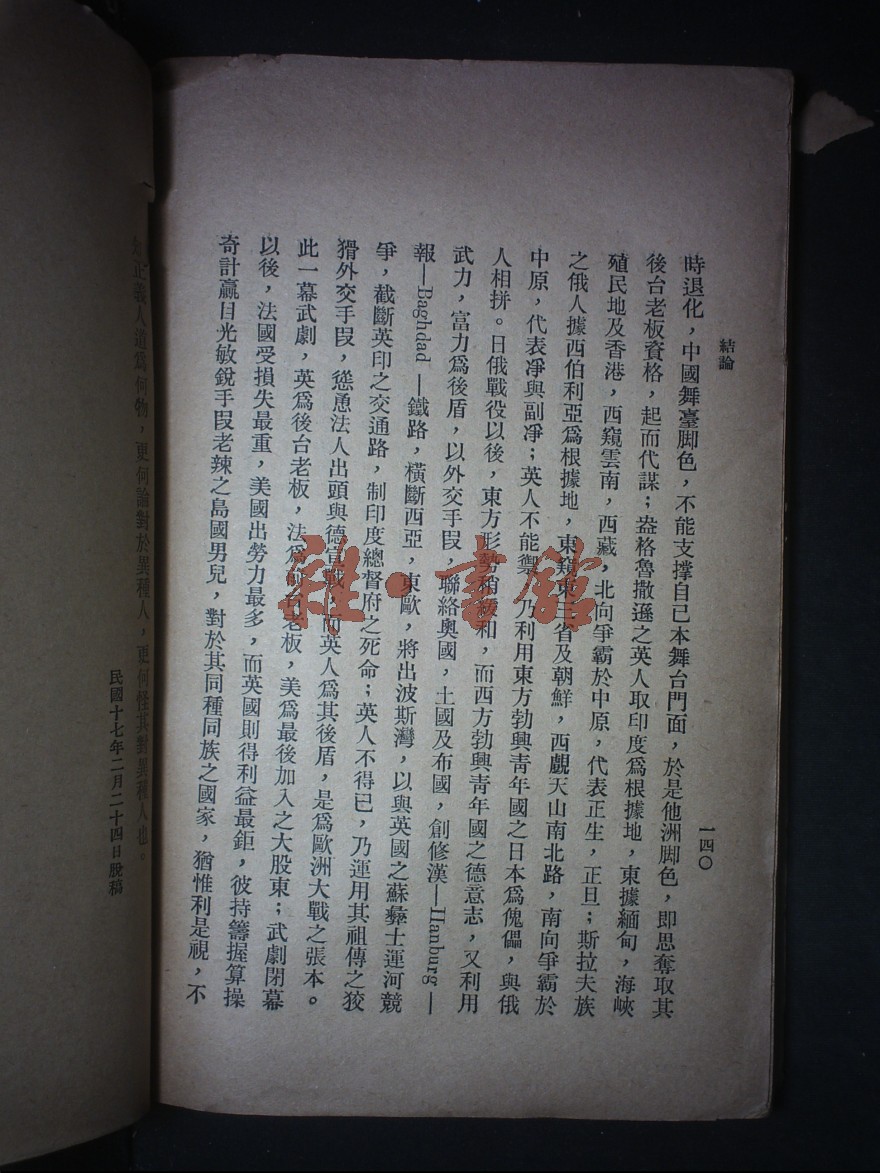 結論
一四〇
時退化，中國舞臺脚色，不能支撑自己本舞台門面，於是他洲脚色，即思奪取其
後台老板資格，起而代謀；盎格魯撒遜之英人取印度爲根據地，東據緬甸，海峽
殖民地及香港，西窺雲南，西藏，北向爭霸於中原，代表正生，正旦；斯拉夫族
之俄人據西伯利亞爲根據地，東窺東三省及朝鮮，西覷天山南北路，南向爭霸於
中原，代表凈與副凈；英人不能禦，乃利用東方勃興靑年國之日本爲傀儡，與俄
人相拼。日俄戰役以後，東方形勢稍緩和，而西方勃興靑年國之德意志，又利用
武力，富力爲後盾，以外交手段，聯絡奧國，土國及布國，創修漢—Hanburg—
報—Baghdad—鐵路，橫斷西亞，東歐，將出波斯灣，以與英國之蘇彝士運河競
爭，截斷英印之交通路，制印度總督府之死命；英人不得已，乃運用其祖傳之狡
猾外交手段，慫恿法人出頭與德宣戰，而英人爲其後盾，是爲歐洲大戰之張本。
此一幕武劇，英爲後台老板，法爲前台老板，美爲最後加入之大股東；武劇閉幕
以後，法國受損失最重，美國出勞力最多，而英國則得利益最鉅，彼持籌握算操
奇計贏目光敏銳手段老辣之島國男兒，對於其同種同族之國家，猶惟利是視，不
知正義人道爲何物，更何論對於異種人，更何怪其對異種人也。
民國十七年二月二十四日脫稿
雜·書館